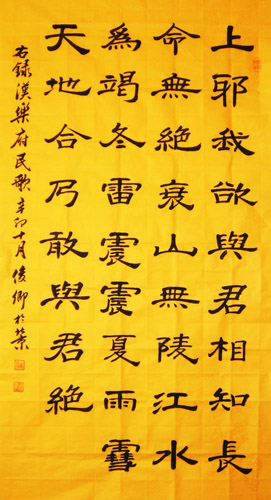 上邪我欲與君相知長
命無絕衰山無陵江水
為竭冬雷震震夏雨雪
天地合乃敢與君絕
右録漢樂府民歌辛卯十月俊卿於